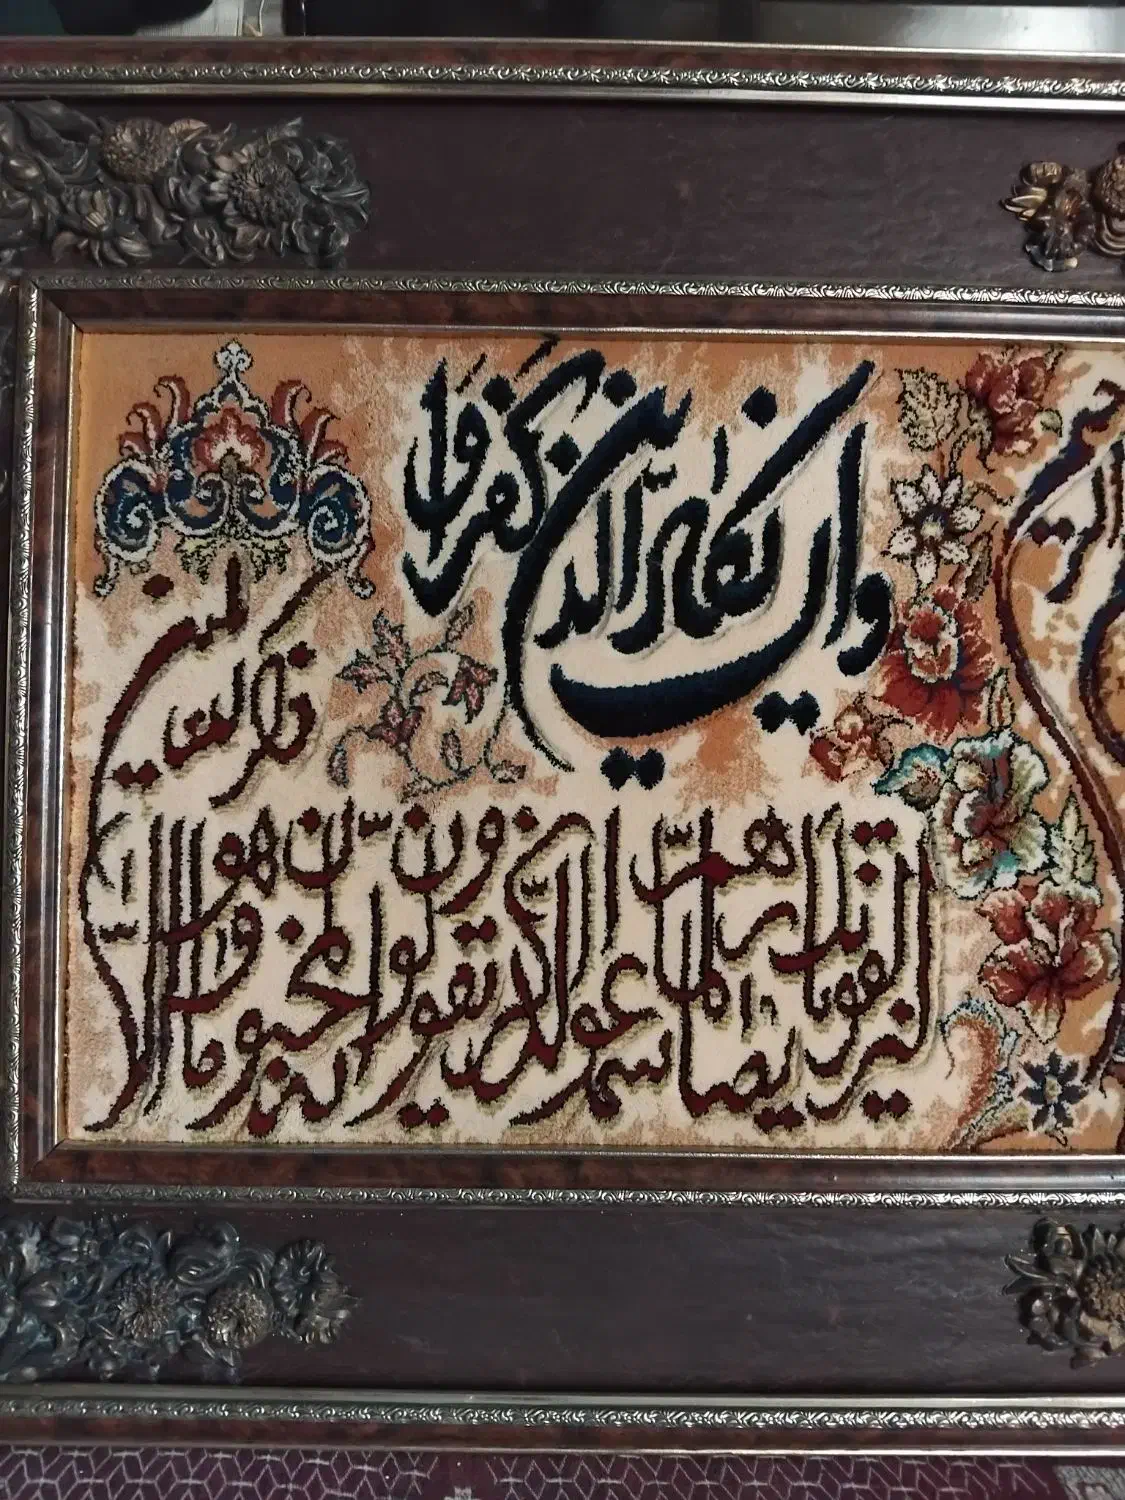 وان یکاد الذین کفروا
لیزلقونک بابصارهم لما سمعوا الذکر و یقولون انه لمجنون و ما هو الا
ذکر للعالمین